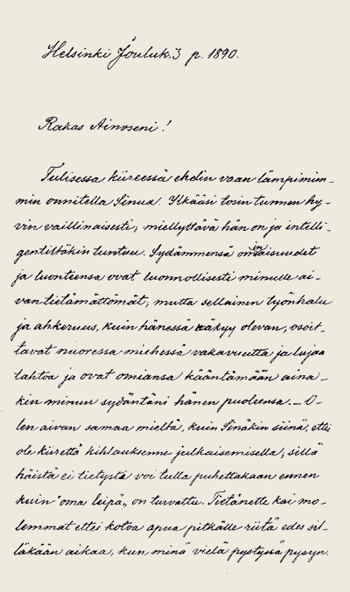 Helsinki Jouluk. 3 p. 1890.
Rakas Ainoseni!
Tulisessa kiireessä ehdin vaan lämpimim-
min onnitella Sinua. Ylkääsi tosin tunnen hy-
vin vaillinaisesti, miellyttävä hän on ja intelli-
gentiltäkin tuntuu. Sydämmensä ominaisuudet
ja luonteensa ovat luonnollisesti minulle ai-
van tietämättömät, mutta sellainen työnhalu
ja ahkeruus, kuin hänessä näkyy olevan, osoit-
tavat nuoressa miehessä vakavuutta ja lujaa
tahtoa ja ovat omiansa kääntämään aina-
kin minun sydäntäni hänen puoleensa. – O-
len aivan samaa mieltä, kuin Sinäkin siinä, ettei
ole kiirettä kihlauksenne julkaisemisella, sillä
häistä ei tietystä voi tulla puhettakaan ennen
kuin "oma leipä" on turvattu. Tiedänette kai mo-
lemmat ettei kotoa apua pitkälle riitä edes sil-
läkään aikaa, kun minä vielä pystyssä pysyn.